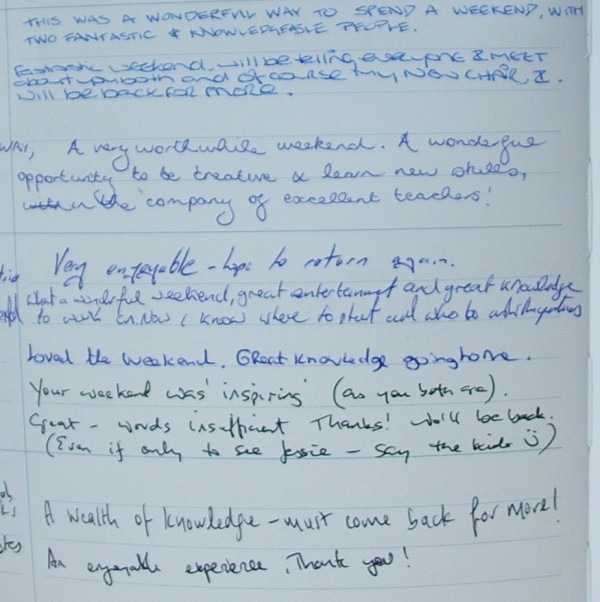 THIS WAS A WONDERFUL WAY TO SPEND A WEEKEND, WITH
TWO FANTASTIC & KNOWLEDGEABLE PEOPLE.
Fantastic weekend, will be telling everyone I MEET
about you both and of course my NEW CHAIR, I.
will be back for more.
WAY, A very worthwhile weekend. A wonderful
opportunity to be creative & learn new skills,
in the company of excellent teachers!
Very enjoyable - hope to return again.
What a wonderful weekend, great entertainment and great knowledge
to work on. Now I know where to start and who to ask the questions
Loved the weekend. Great knowledge going home.
Your weekend was 'inspiring' (as you both are).
Great - words insufficient Thanks! We'll be back.
(Even if only to see Jessie - say the kids ☺)
A wealth of knowledge - must come back for more!
An enjoyable experience, Thank you!